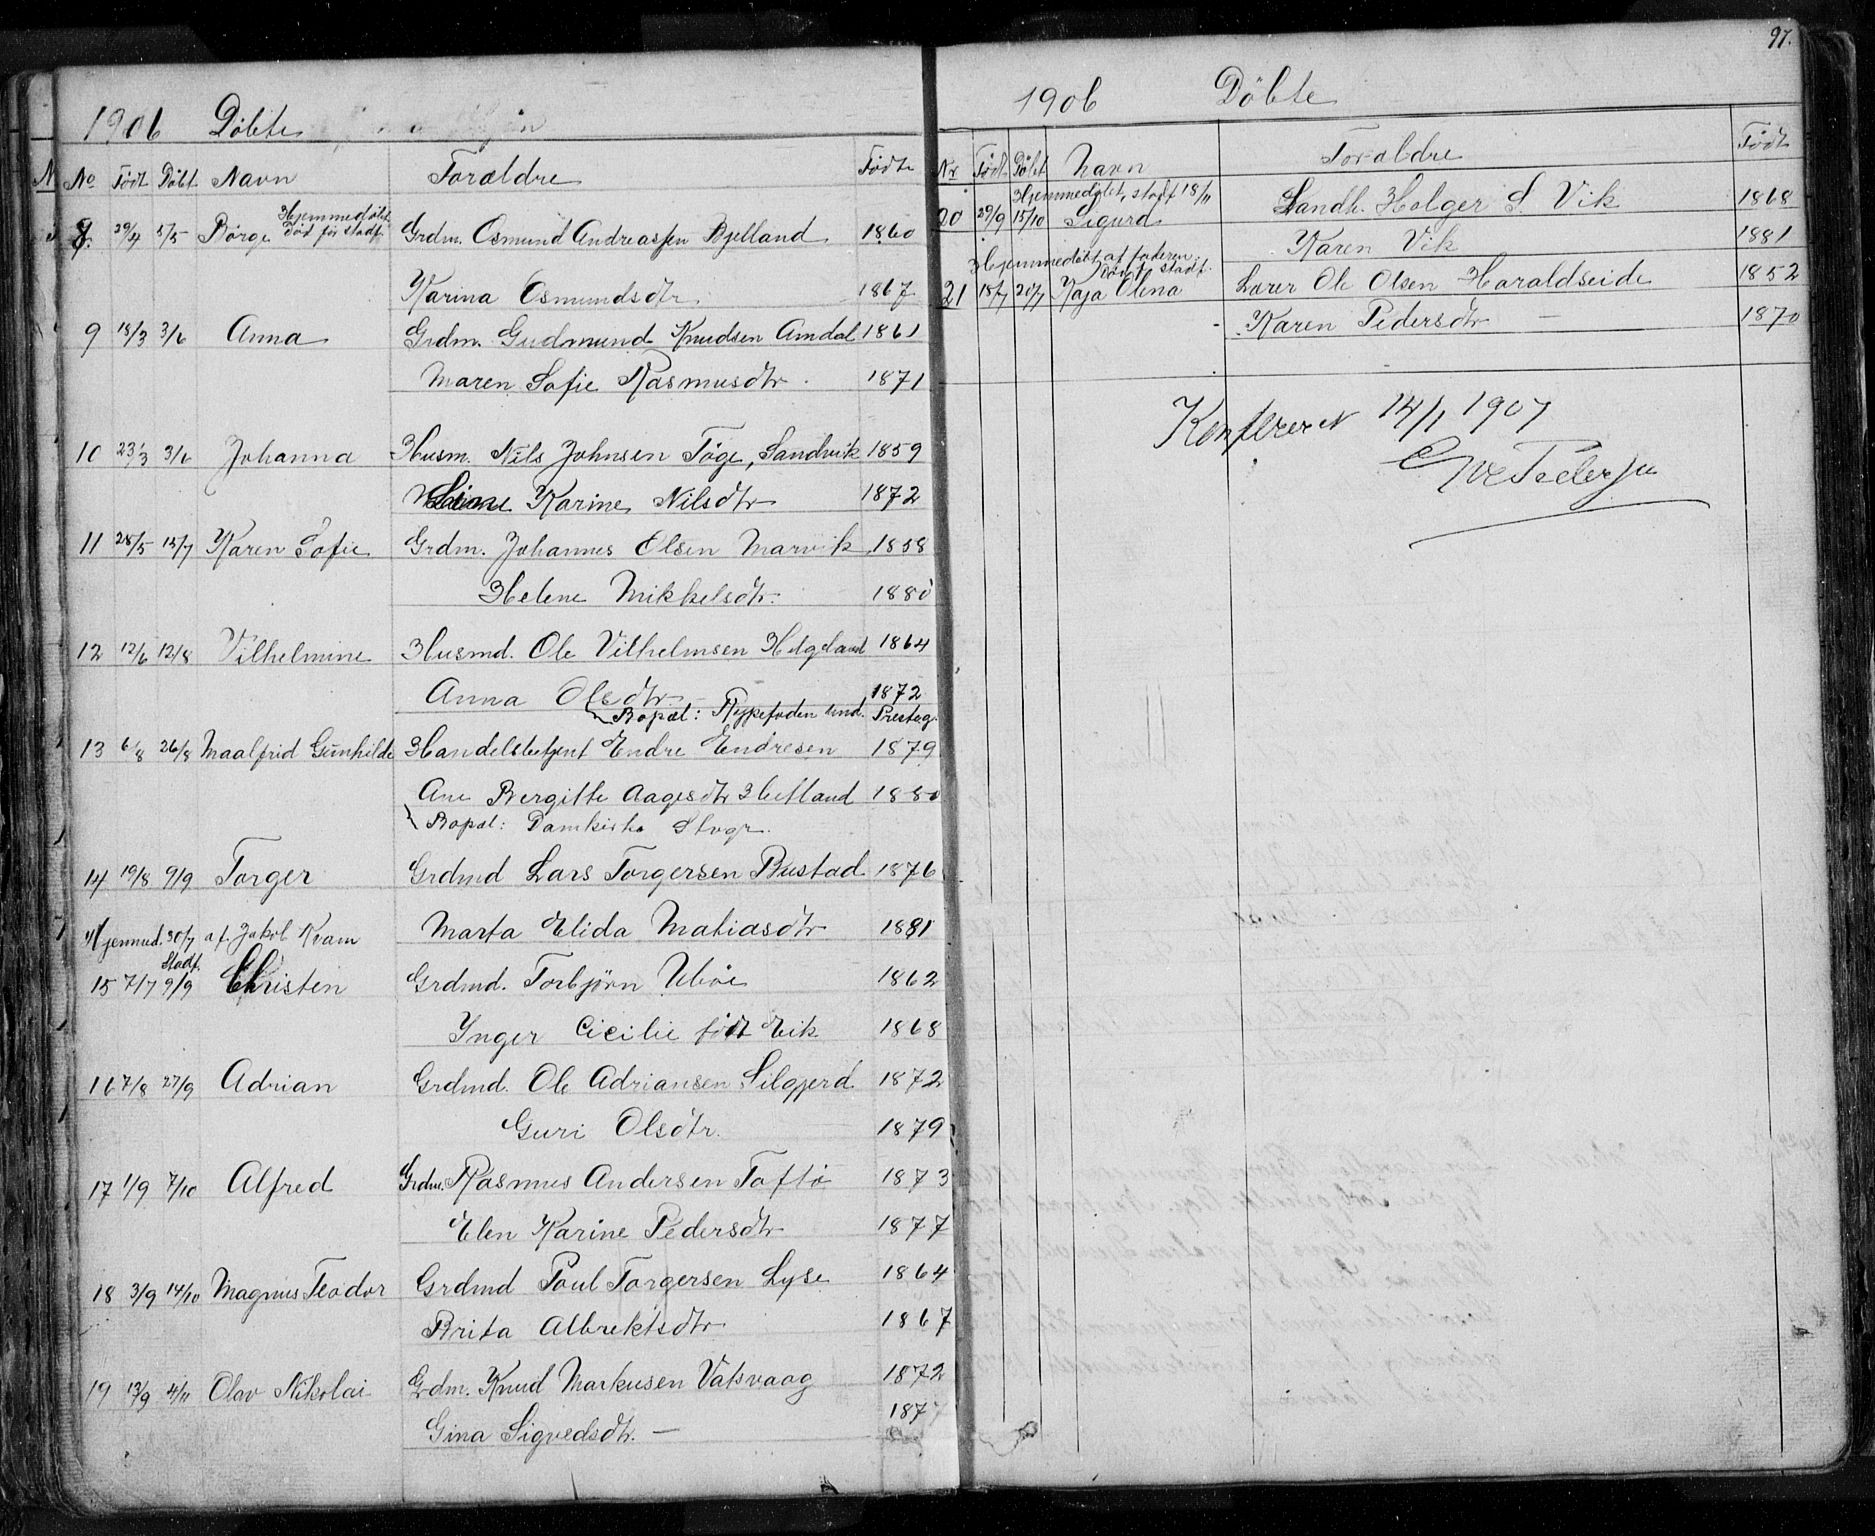 1906 Döbte
No Födt Döbt Navn Forældre Födte
8. 29/4 5/5 Börge Hjemmedöbt Död för stadf. Grdm. Osmund Andreassen Bjelland 1860
Karina Osmundsdtr 1867
9 18/3 3/6 Anna Grdm. Gudmund Knudsen Amdal 1861
Maren Sofie Rasmusdtr. 1871
10 23/3 3/6 Johanna Husm. Nils Johnsen Töge, Sandvik 1859
Karine Nilsdtr 1872
11 28/5 15/7 Karen Sofie Grdm. Johannes Olsen Marvik 1858
Helene Mikkelsdtr. 1880
12 12/6 12/8 Vilhelmine Husmd. Ole Vilhelmsen Helgeland 1864
Anna Olsdtr 1872
Bopæl: Rypefoden und. Presteg.
13 6/8 26/8 Maalfrid Gunhilde Handelsbetjent Endre Endresen 1879
Ane Bergitte Aagesdtr Hetland 1880
Bopæl: Domkirke Stvgr.
14 19/8 9/9 Torger Grdmd Lars Torgersen Bustad 1876
Marta Elida Matiasdtr 1881
Hjemmed. 30/7 af Jakob Kvam
Stadf.
15 7/7 9/9 Christen Grdmd. Torbjörn Uböe 1862
Inger Cicilie födt Eik 1868
16 7/8 27/9 Adrian Grdmd. Ole Adriansen Silgjerd 1872
Guri Olsdtr. 1879
17 1/9 7/10 Alfred Grdm. Rasmus Andersen Toftö 1873
Elen Karine Pedersdtr 1877
18 3/9 14/10 Magnus Teodor Grdmd Poul Torgersen Lyse 1864
Brita Albrektsdtr 1867
19 13/9 4/11 Olav Nikolai Grdm. Knud Markusen Vatsvaag 1872
Gina Sigvedsdtr. — 1877
97.
1906 Döbte
Nr Födt Döbt Navn Forældre Födt
Hjemmedöbt, stadf 18/11
20 29/9 15/10 Sigurd Landh. Holger S. Vik 1868
Karen Vik 1881
Hjemmedöbt af faderen.
stadf.
21 18/7 20/7 Kaja Olena Lærer Ole Olsen Haraldseide 1852
Karen Pedersdtr — 1870
Konfereret 14/1 1907